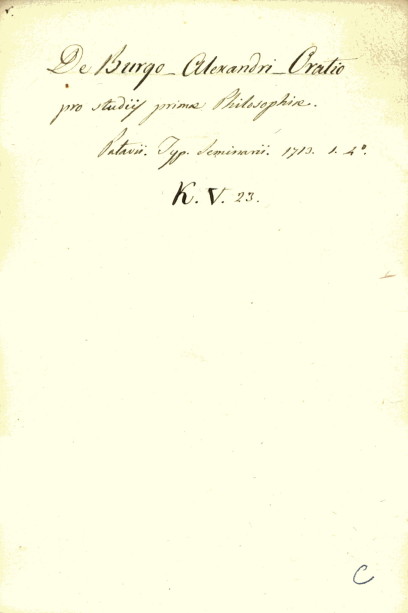 De Burgo_Alexandri_Oratio
pro studiis primæ Philosophiæ.
Patavii. Typ. Seminarii. 1713. 1. 4°.
K. V. 23.
C